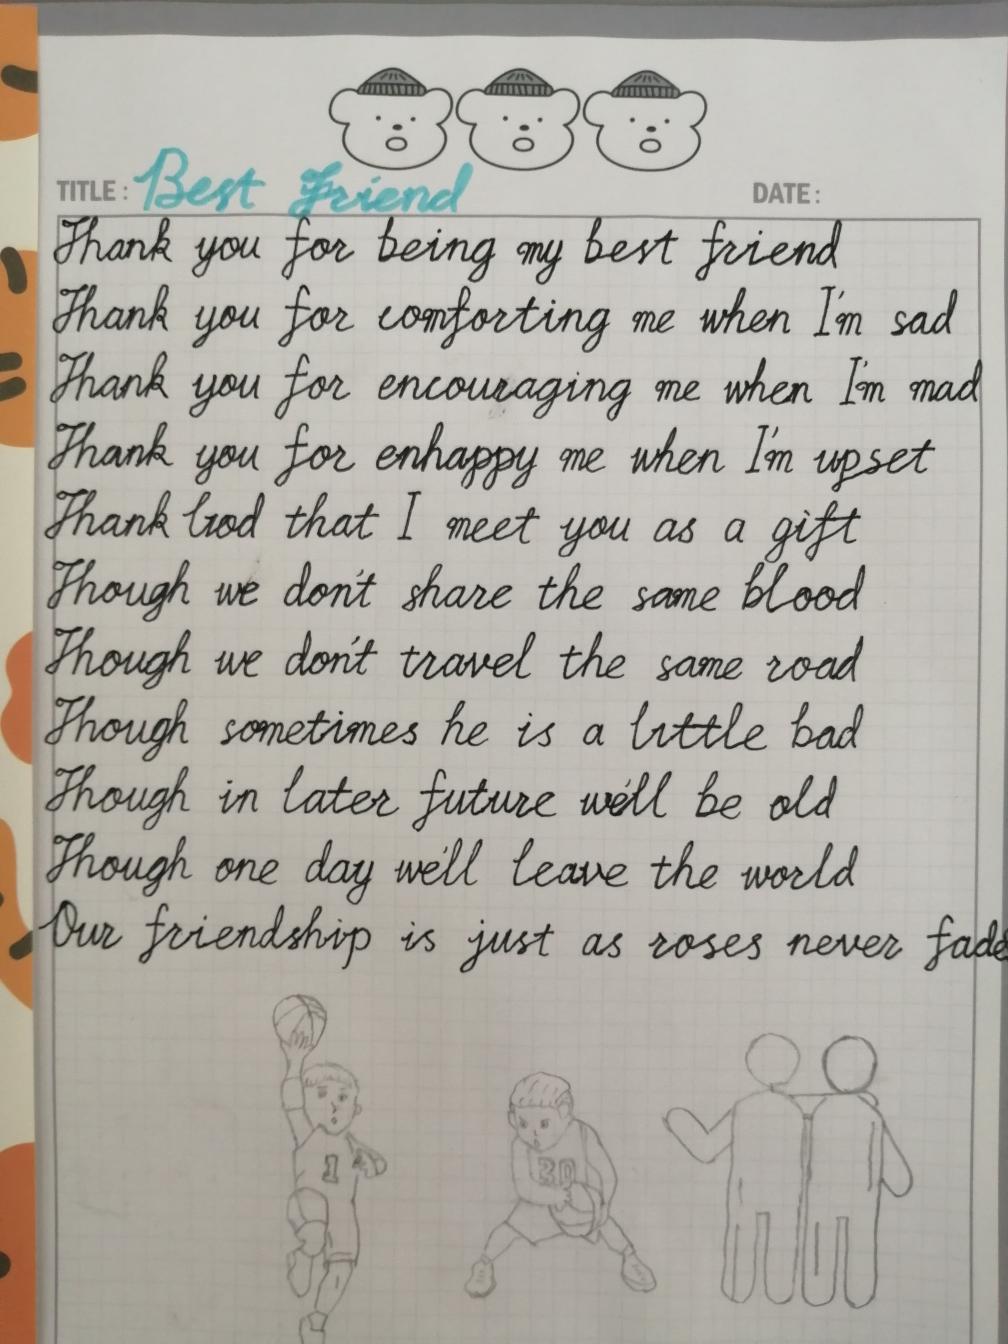 TITLE: Best Friend
DATE:
Thank you for being my best friend
Thank you for comforting me when I'm sad
Thank you for encouraging me when I'm mad
Thank you for enhappy me when I'm upset
Thank God that I meet you as a gift
Though we don't share the same blood
Though we don't travel the same road
Though sometimes he is a little bad
Though in later future we'll be old
Though one day we'll leave the world
Our friendship is just as roses never fade
1
30